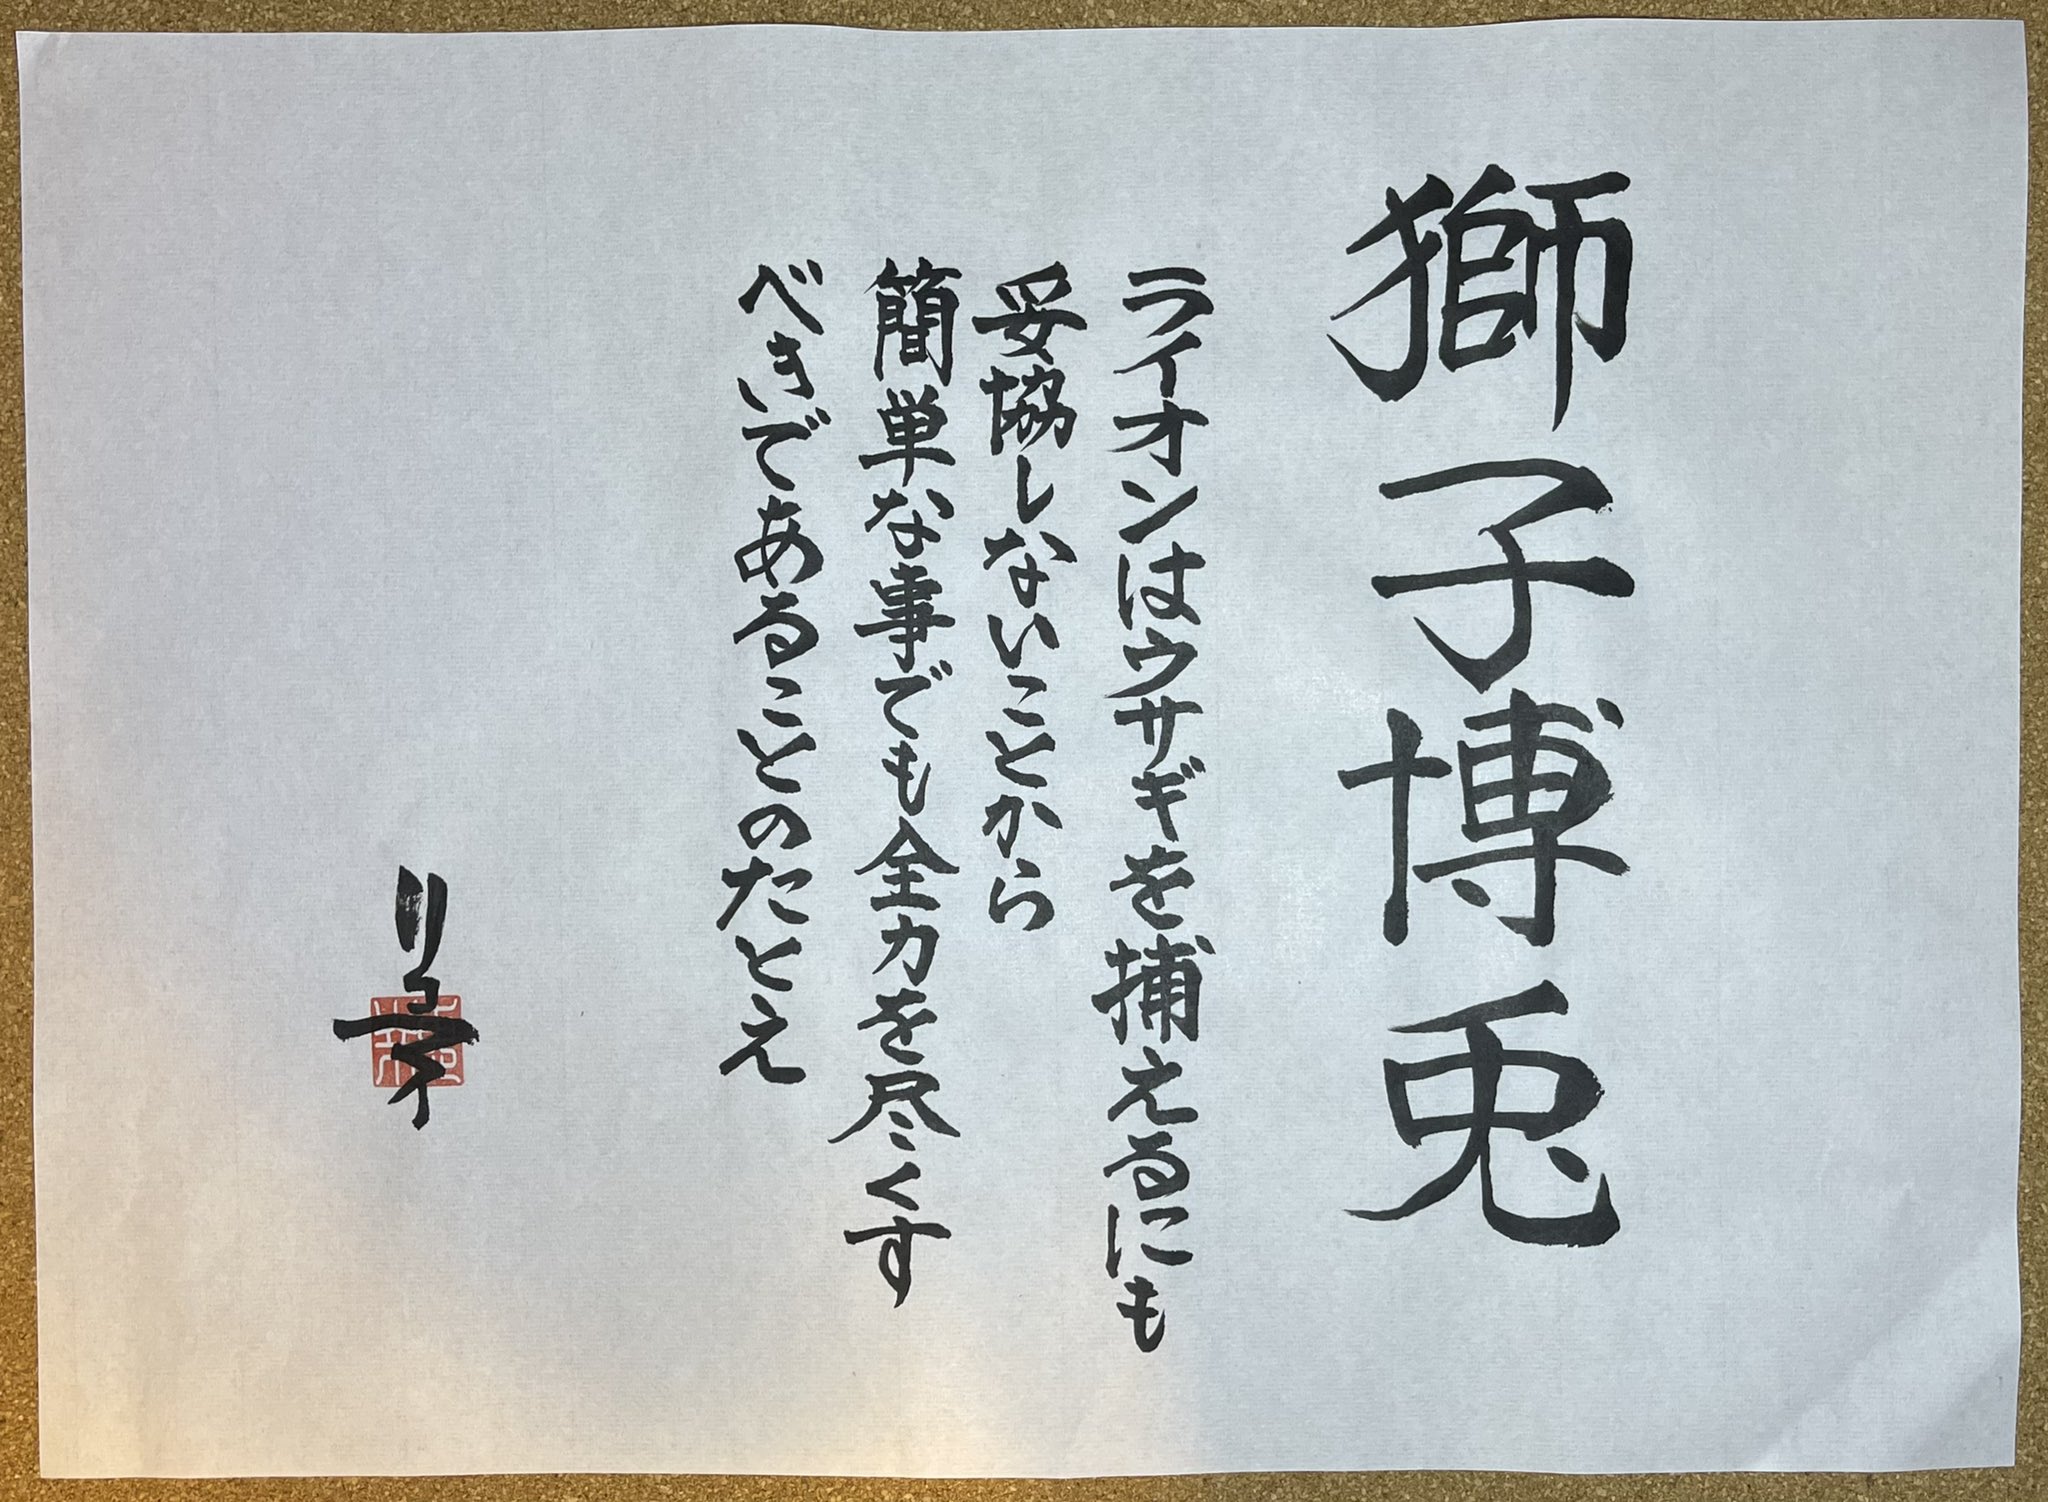 獅子博兎
ライオンはウサギを捕えるにも
妥協しないことから
簡単な事でも全力を尽くす
べきであることのたとえ